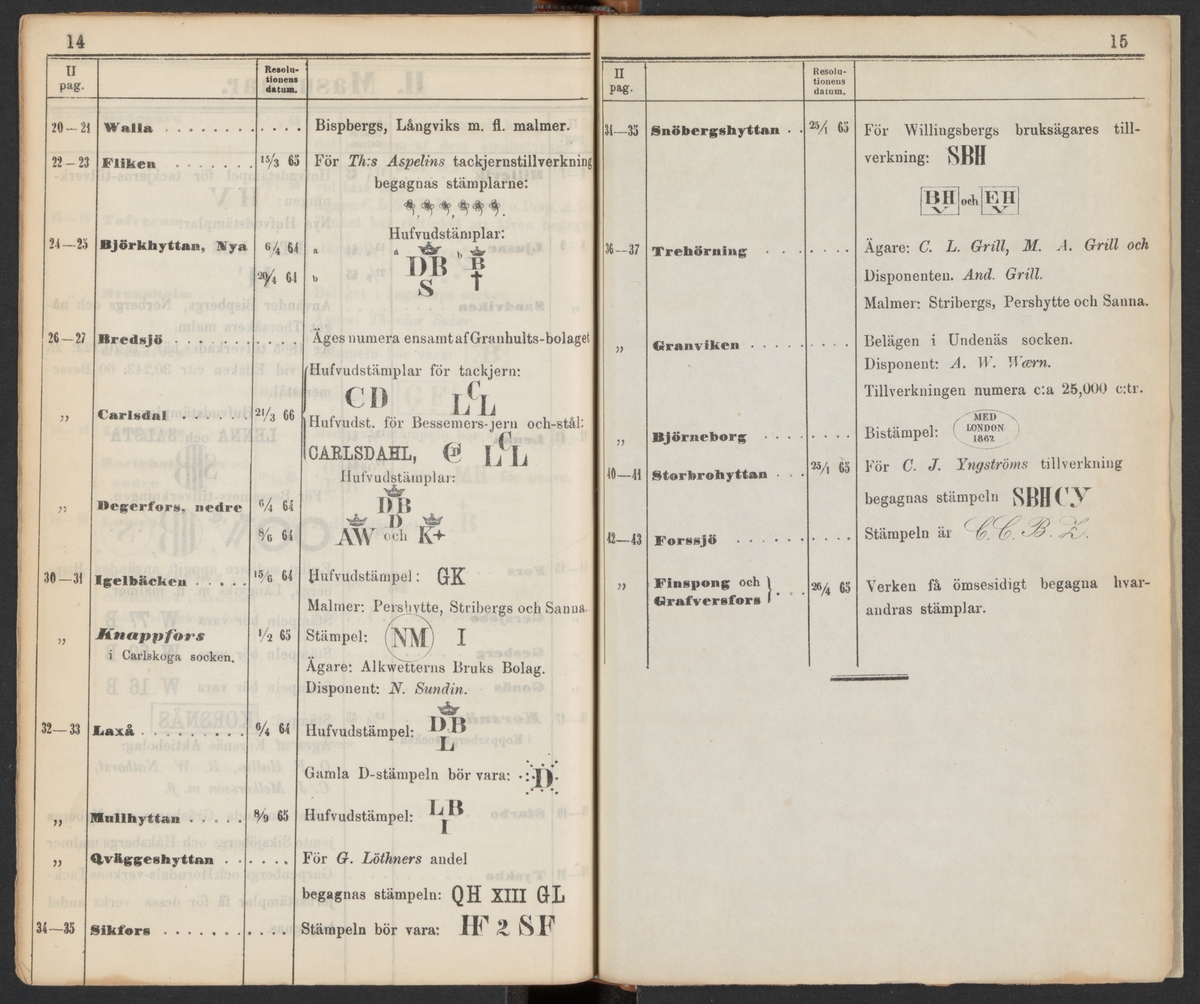 14
II pag. Resolutionens datum.
20—21 Walla . . . . . . . . . . . . . Bispbergs, Långviks m. fl. malmer.
22—23 Fliken . . . . . . . 15/3 65 För Th:s Aspelins tackjernstillverkning
begagnas stämplarne:
Hufvudstämplar:
24—25 Björkhyttan, Nya 6/4 64 a a DB S b B †
20/4 64 b
26—27 Bredsjö . . . . . . . . . . . . Äges numera ensamt af Granhults-bolaget
Hufvudstämplar för tackjern:
CD LCL
„ Carlsdal . . . . . . 21/3 66
Hufvudst. för Bessemers-jern och-stål:
CARLSDAHL, LCL
Hufvudstämplar:
„ Degerfors, nedre 6/4 64 DB D
8/6 64 AW och K+
30—31 Igelbäcken . . . . . 15/6 64 Hufvudstämpel: GK
Malmer: Pershytte, Stribergs och Sanna.
„ Knappfors 1/2 65 Stämpel: NM I
i Carlskoga socken.
Ägare: Alkwetterns Bruks Bolag.
Disponent: N. Sundin.
32—33 Laxå . . . . . . . . . 6/4 64 Hufvudstämpel: DB L
Gamla D-stämpeln bör vara: D
„ Mullhyttan . . . . . 8/9 65 Hufvudstämpel: LB I
„ Qväggeshyttan . . . . . . För G. Löthners andel
begagnas stämpeln: QH XIII GL
34—35 Sikfors . . . . . . . . . . . . Stämpeln bör vara: HF 2 SF
15
II pag. Resolutionens datum.
34—35 Snöbergshyttan . . 25/1 65 För Willingsbergs bruksägares till-
verkning: SBH
BH V och EH V
36—37 Trehörning . . . . . . . . Ägare: C. L. Grill, M. A. Grill och
Disponenten. And. Grill.
Malmer: Stribergs, Pershytte och Sanna.
„ Granviken . . . . . . . . . Belägen i Undenäs socken.
Disponent: A. W. Wærn.
Tillverkningen numera c:a 25,000 c:tr.
„ Björneborg . . . . . . . . Bistämpel: MED LONDON 1862
40—41 Storbrohyttan . . . 25/1 65 För C. J. Yngströms tillverkning
begagnas stämpeln SBHCY
42—43 Forssjö . . . . . . . . . . Stämpeln är C. C. B. Z.
„ Finspong och Grafversfors } . . . 26/4 65 Verken få ömsesidigt begagna hvar-
andras stämplar.